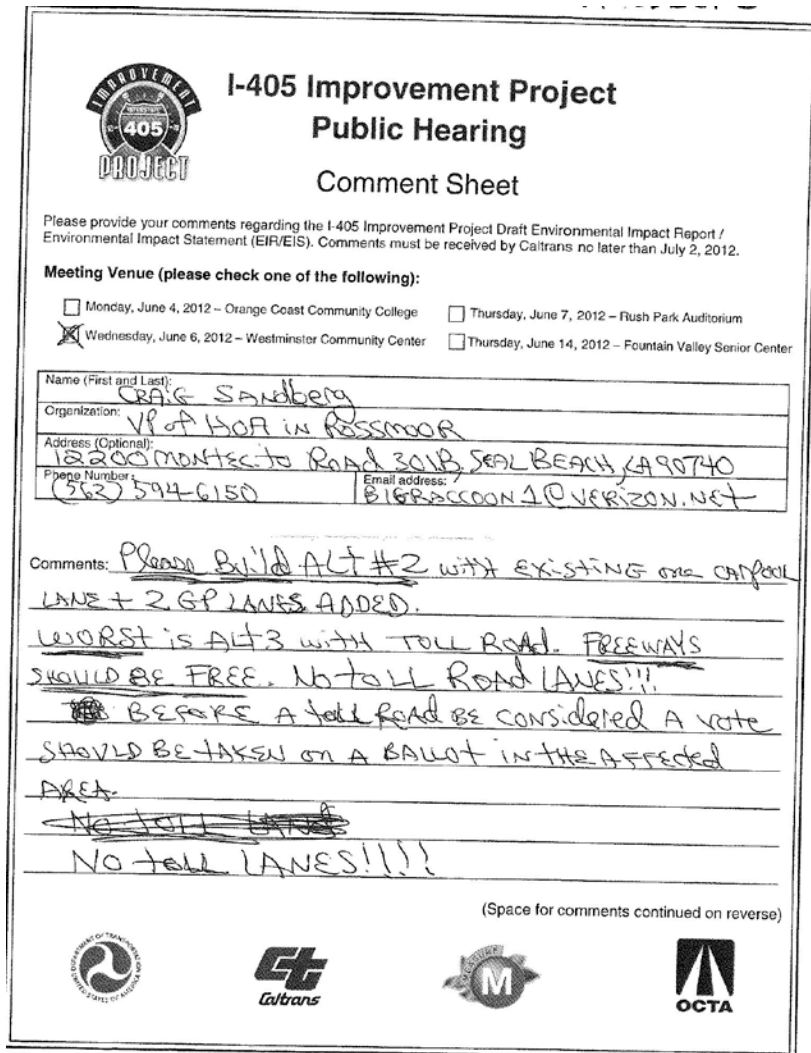 IMPROVEMENT
INTERSTATE
405
PROJECT
I-405 Improvement Project
Public Hearing
Comment Sheet
Please provide your comments regarding the I-405 Improvement Project Draft Environmental Impact Report /
Environmental Impact Statement (EIR/EIS). Comments must be received by Caltrans no later than July 2, 2012.
Meeting Venue (please check one of the following):
Monday, June 4, 2012 – Orange Coast Community College
Thursday, June 7, 2012 – Rush Park Auditorium
Wednesday, June 6, 2012 – Westminster Community Center
Thursday, June 14, 2012 – Fountain Valley Senior Center
Name (First and Last): CRAIG SANdbErg
Organization: VP of HOA iN ROSSMOOR
Address (Optional): 12200 MONTECito ROAd 301B, SEAL BEACH, CA 90740
Phone Number: (562) 594-6150
Email address: BIGRACCOON1@VERIZON.NEt
Comments: Please Build ALT #2 with EXiStiNG one CARPOOL
LANE + 2 GP LANES ADDED.
WORST is ALT 3 with TOLL ROAD. FREEWAYS
SHOULD BE FREE. No toLL ROAd LANES!!!
BEFORE A toll ROAD BE CONSidered A vote
SHOULD BE tAKEN on A BALLOT iN tHE AFFECted
AREA.
No toll LANES
NO toll LANES!!!!
(Space for comments continued on reverse)
DEPARTMENT OF TRANSPORTATION
UNITED STATES OF AMERICA
Ct
Caltrans
MEASURE
M
OCTA